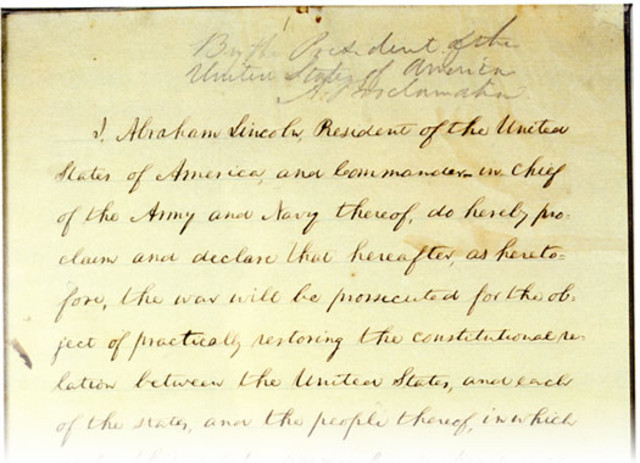 By the President of the
United States of America
A Proclamation.
I, Abraham Lincoln, President of the United
States of America, and Commander-in-Chief
of the Army and Navy thereof, do hereby pro-
claim and declare that hereafter, as hereto-
fore, the war will be prossecuted for the ob-
ject of practically restoring the constitutional re-
lation between the United States, and each
of the states, and the people thereof, in which